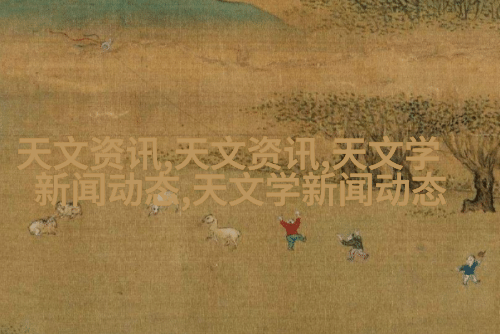 天文资讯,天文资讯,天文学
新闻动态,天文学新闻动态